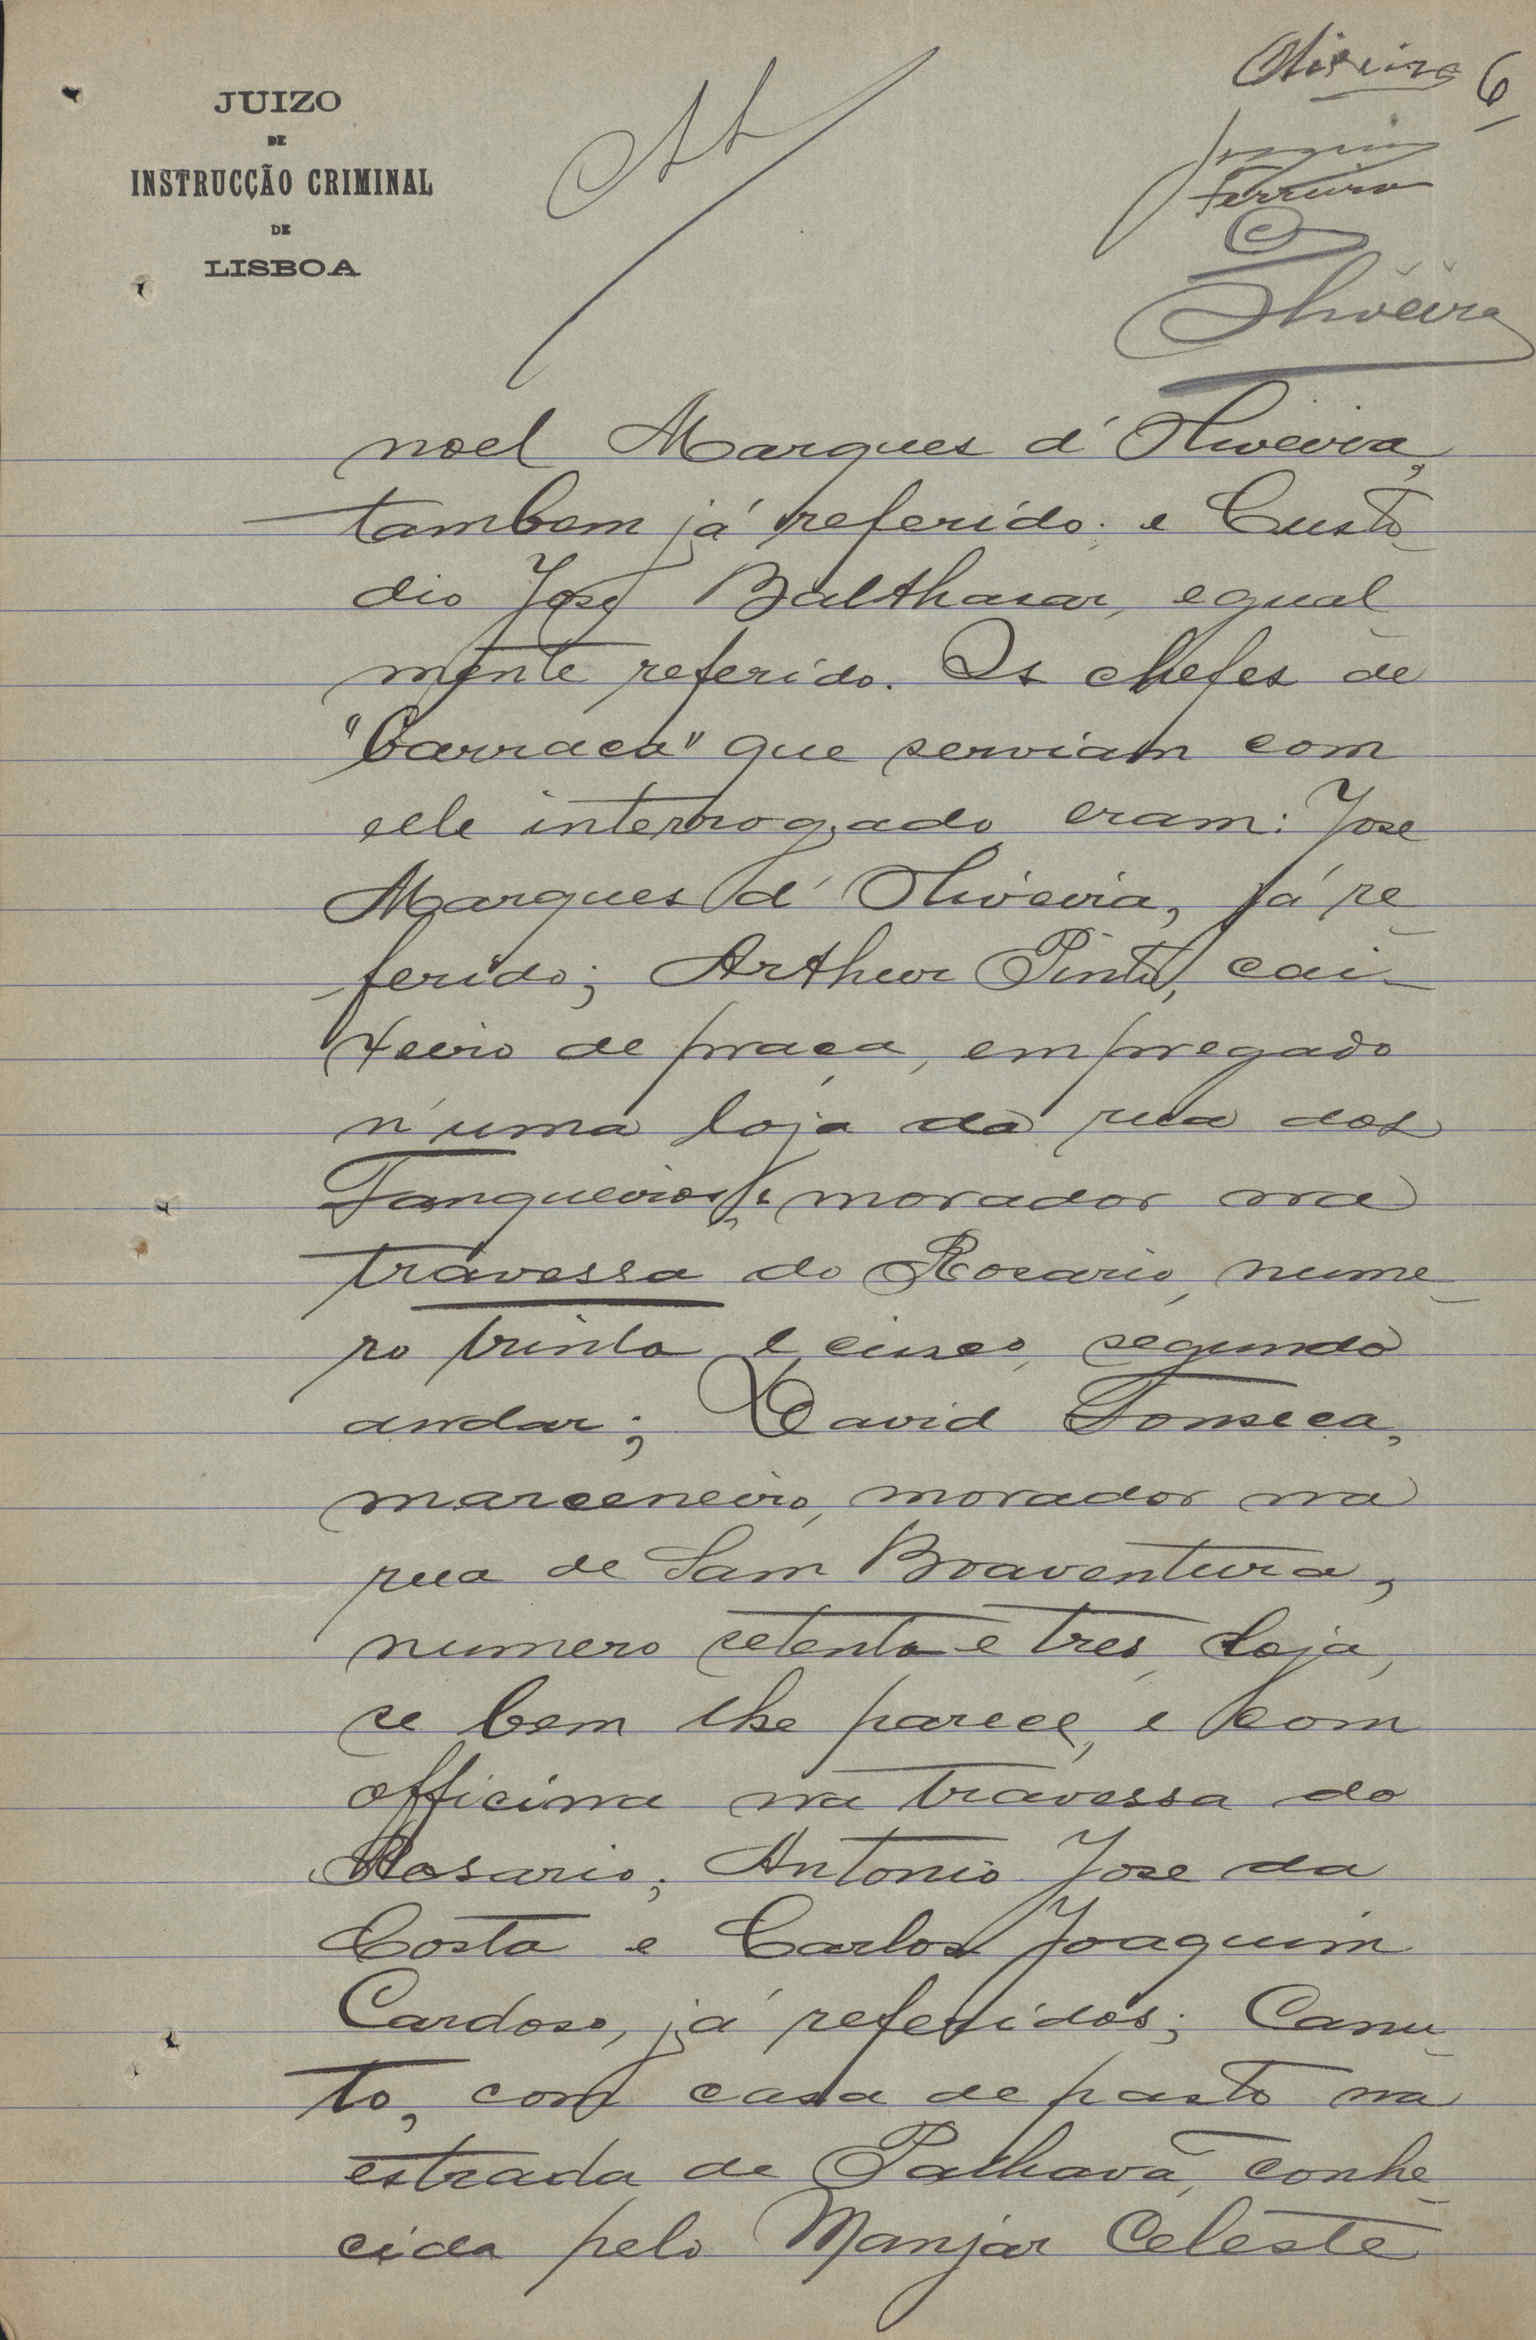 JUIZO
DE
INSTRUCÇÃO CRIMINAL
DE
LISBOA
Oliveira 6
Ferreira
Oliveira
noel Marques d'Oliveira,
tambem já referido e Custo-
dio José Balthasar, egual-
mente referido. Os chefes de
"barraca" que serviam com
elle interrogado eram: José
Marques d'Oliveira, já re-
ferido; Arthur Pinto, cai-
xeiro de praça, empregado
n'uma loja da rua dos
Fanqueiros, morador na
travessa do Rosario, nume-
ro trinta e cinco, segundo
andar; David Fonseca,
marceneiro, morador na
rua de Sam Boaventura,
numero setenta e tres, loja,
se bem lhe parece, e com
officina na travessa do
Rosario; Antonio José da
Costa e Carlos Joaquim
Cardoso, já referidos; Canu-
to, com casa de pasto na
estrada de Palhavã, conhe-
cida pelo Manjar Celeste